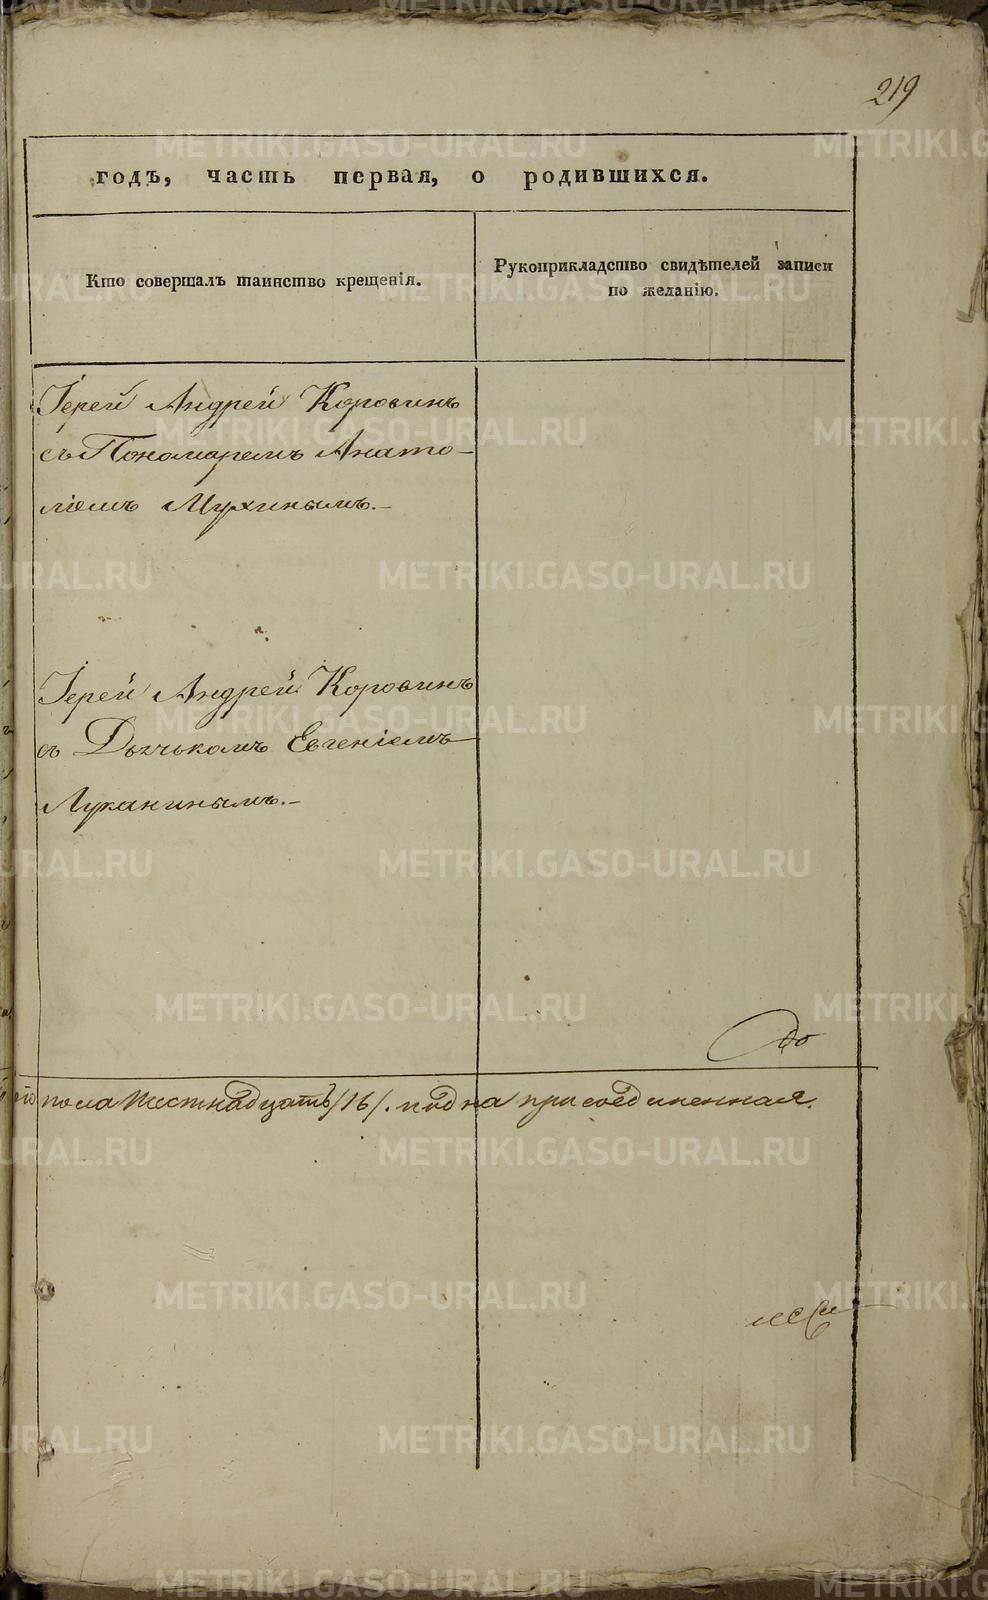 219
годъ, часть первая, о родившихся.
Кто совершалъ таинство крещенія.
Рукоприкладство свидѣтелей записи
по желанію.
Іерей Андрей Коровинъ
съ Пономаремъ Анато-
ліемъ Мухинымъ.
Іерей Андрей Коровинъ
съ Дьячькомъ Евгеніемъ
Луканинымъ.
до
пола Шестнадцать /16/. и одна присоединенная.
METRIKI.GASO-URAL.RU